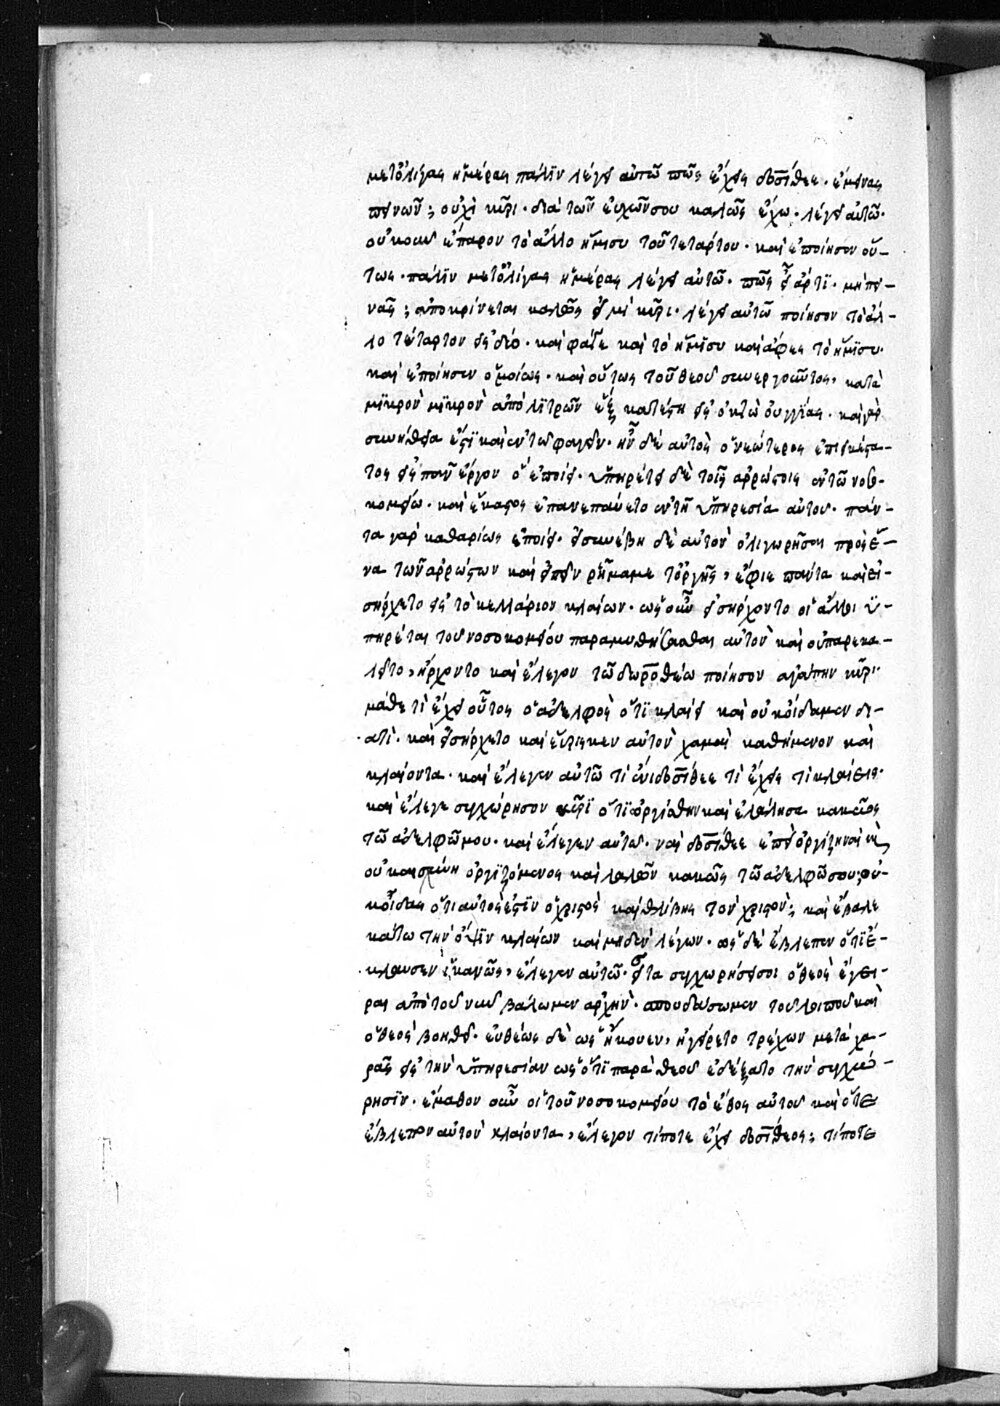 μετὀλίγας ἡμέρας πάλιν λέγει αὐτῶ πῶς ἔχεις δοσίθεε. ἔμεινας
πεινῶν; οὐχὶ κῦρι. διὰ τῶν εὐχῶν σου καλῶς ἔχω. λέγει αὐτῶ.
οὐκοῦν ἔπαρον τὸ ἄλλο ἥμισυ τοῦ τετάρτου. καὶ ἐποίησεν οὕ-
τως. πάλιν μετὀλίγας ἡμέρας λέγει αὐτῶ. πῶς εἶ ἄρτι. μὴ πει-
νᾶς; ἀποκρίνεται καλῶς εἰμὶ κῦρι. λέγει αὐτῶ ποίησον τὸ ἄλ-
λο τέταρτον εἰς δύο. καὶ φάγε καὶ τὸ ἥμισυ καὶ ἄφες τὸ ἥμισυ.
καὶ ἐποίησεν ὁμοίως. καὶ οὕτως τοῦ θεοῦ συνεργοῦντος, κατὰ
μικρὸν μικρὸν ἀπὸ λιτρῶν ἓξ κατέστη εἰς ὀκτὼ οὐγγίας. καὶ γὰρ
συνήθεια ἐστὶ καὶ ἐν τῶ φαγεῖν. ἦν δὲ αὐτὸς ὁ νεώτερος ἐπιεικέστα-
τος εἰς πᾶν ἔργον ὃ ἐποίει. ὑπηρέτει δὲ τοῖς ἀρρώστοις ἐν τῶ νοσο-
κομείω. καὶ ἕκαστος ἐπανεπαύετο ἐν τῆ ὑπηρεσία αὐτοῦ. πάν-
τα γὰρ καθαρίως ἐποίει. εἰ συνέβη δὲ αὐτὸν ὀλιγωρῆσαι πρὸς ἕ-
να τῶν ἀρρώστων καὶ εἰπεῖν ῥῆμα μετ' ὀργῆς, ἔφιε πάντα καὶ εἰ-
σήρχετο εἰς τὸ κελλάριον κλαίων. ὡς οὖν εἰσήρχοντο οἱ ἄλλοι ὑ-
πηρέται τοῦ νοσοκομείου παραμυθήσασθαι αὐτὸν καὶ οὐ παρεκα-
λεῖτο, ἤρχοντο καὶ ἔλεγον τῶ δωροθέω ποίησον ἀγάπην κῦρι.
μάθε τί ἔχει οὗτος ὁ ἀδελφὸς ὅτι κλαίει καὶ οὐκ οἴδαμεν δι-
ατί. καὶ εἰσήρχετο καὶ εὕρισκεν αὐτὸν χαμαὶ καθήμενον καὶ
κλαίοντα. καὶ ἔλεγεν αὐτῶ τί ἔνι δοσίθεε τί ἔχεις τί κλαίεις.
καὶ ἔλεγε συγχώρησον κῦρι ὅτι ὠργίσθην καὶ ἐλάλησα κακῶς
τῶ ἀδελφῶ μου. καὶ ἔλεγεν αὐτῶ. ναὶ δοσίθεε ὀργίζη ναὶ
οὐκ αἰσχύνη ὀργιζόμενος καὶ λαλῶν κακῶς τῶ ἀδελφῶ σου; οὐ-
κ οἶδας ὅτι αὐτός ἐστιν ὁ χριστὸς καὶ θλίβεις τὸν χριστόν; καὶ ἔβαλε
κάτω τὴν ὄψιν κλαίων καὶ μηδὲν λέγων. ὡς δὲ ἔβλεπεν ὅτι ἔ-
κλαυσεν ἱκανῶς, ἔλεγεν αὐτῶ. εἶτα συγχωρήσει σοι ὁ θεὸς ἔγει-
ραι ἀπὸ τοῦ νῦν βάλωμεν ἀρχὴν. σπουδάσωμεν τοῦ λοιποῦ καὶ
ὁ θεὸς βοηθεῖ. εὐθέως δὲ ὡς ἤκουεν, ἠγείρετο τρέχων μετὰ χα-
ρᾶς εἰς τὴν ὑπηρεσίαν ὡς ὅτι παρὰ θεοῦ ἐδέξατο τὴν συγχώ-
ρησιν. ἔμαθον οὖν οἱ τοῦ νοσοκομείου τὸ ἔθος αὐτοῦ καὶ ὅτε
ἔβλεπον αὐτὸν κλαίοντα, ἔλεγον τίποτε ἔχει δοσίθεος; τίποτε